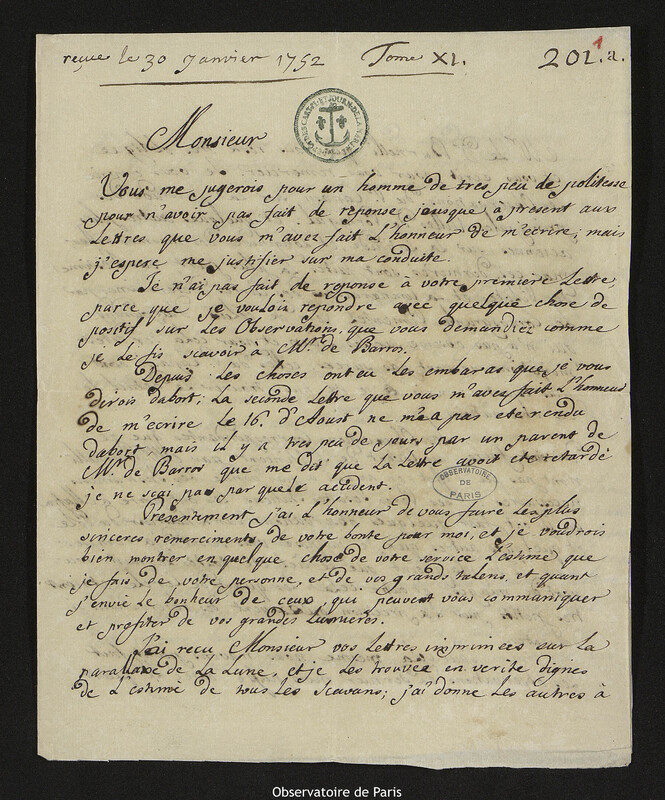 reçue le 30 Janvier 1752 Tome XI. 201.a.
1
Monsieur
Vous me jugerois pour un homme de tres peu de politesse
pour n'avoir pas fait de reponse jousque à present aux
Lettres que vous m'avez fait L'honneur de m'ecrire; mais
j'espere me justifier sur ma conduite.
Je n'ai pas fait de reponse à votre premiere Lettre,
parce que je voulois repondre avec quelque chose de
positif sur Les Observations, que vous demandiéz comme
je Le fis scavoir à Mr. de Barros.
Depuis Les choses ont eu Les embaras que je vous
dirois dabort; La seconde Lettre que vous m'avez fait L'honneur
de m'ecrire Le 16. d'Aoust ne m'a pas eté rendu
dabort, mais il y a tres peu de jours par un parent de
Mr. de Barros que me dit que La Lettre avoit eté retardé
je ne scai pas par quele accident.
Presentement j'ai L'honneur de vous faire Les plus
sinceres remerciments de votre bonte pour moi, et je voudrois
bien montrer en quelque chose de votre service L'estime que
je fais de votre personne, et de vos grands talens, et quant
j'envie Le bonheur de ceux, qui peuvent vous communiquer
et profiter de vos grandes Lumieres.
J'ai reçu Monsieur vos Lettres imprimées sur La
parallaxe de La Lune, et je Les trouvée en verite dignes
de L'estime de tous Les scavans; j'ai donné Les autres à
OBSERVATOIRE
DE
PARIS
Observatoire de Paris